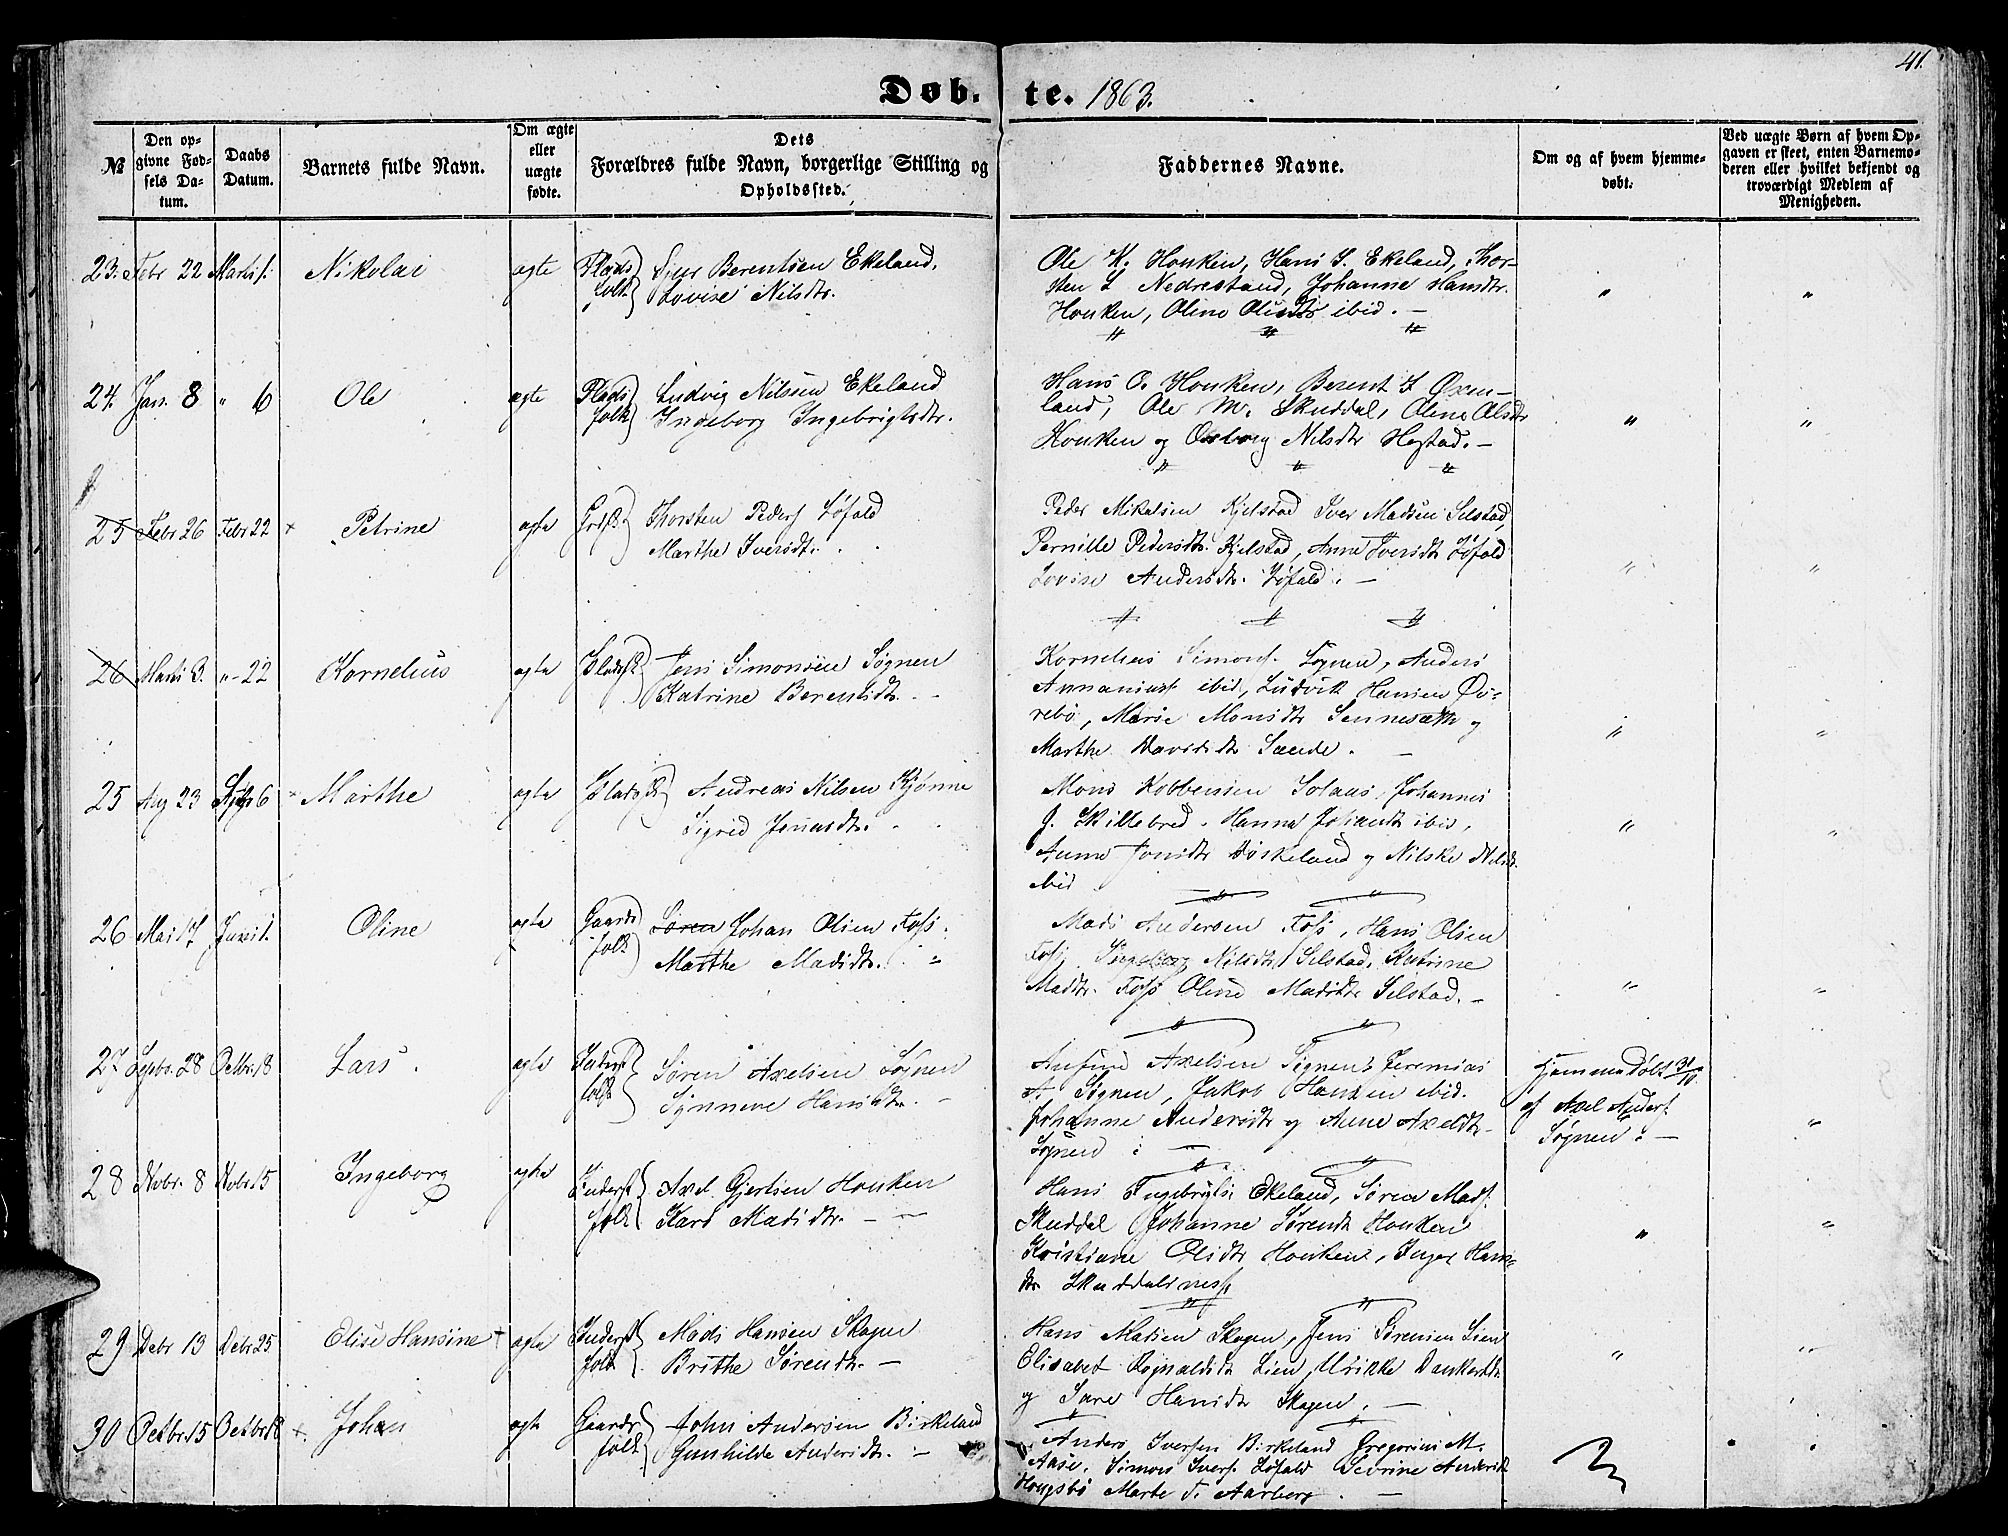 41.
Døb- te. 1863.
№
Den opgivne Fødsels Datum.
Daabs Datum.
Barnets fulde Navn.
Om ægte eller uægte fødte.
Dets Forældres fulde Navn, borgerlige Stilling og Opholdssted.
Faddernes Navne.
Om og af hvem hjemmedøbt.
Ved uægte Børn af hvem Opgaven er skeet, enten Barnemoderen eller hvilket bekjendt og troværdigt Medlem af Menigheden.
23. Febr 22 Marts 1. Nikolai ægte Plads folk Sjur Berentsen Ekeland.
Lovise Nilsdtr.
Ole M. Houken, Hans S. Ekeland, Thor-
sten S Nedrestand, Johanne Hansdtr.
Houken, Oline Olsdtr ibid. —
" " "
24. Jan. 8 " 6 Ole ægte Plads folk Ludvig Nilsen Ekeland
Ingeborg Ingebrigtsdtr.
Hans O. Houken, Berent S Øxen-
land, Ole M. Skuddal, Oline Olsdtr
Houken og Nilsdtr Hestad. —
" " "
25 Febr 26 Febr 22 + Petrine ægte Grdsf. Thorsten Peders. Løfald
Marthe Iversdtr.
Peder Mikelsen Kjelstad Iver Madsen Selstad,
Pernille Pedersdtr. Kjelstad, Anne Iversdtr Løfald
Lovise Andersdtr. Løfald. —
" " "
26 Marts 3. " - 22 Kornelius ægte Pladsf. Jens Simonsen Søgnen
Katrine Berentsdtr. -
Kornelius Simons. Søgnen, Anders
Annanias. ibid, Ludvik Hansen Øv-
rebø, Marie Monsdtr Sennesæth og
Marthe Davidsdtr Sande. —
25 Aug 23 Sptbr 6 Marthe ægte Pladsf. Andreas Nilsen Kjønne
Sigrid Jonasdtr.
Mons Kobbensen Solaas, Johannes
J. Skillebred. Hanna Johansdtr ibid,
Anne Jonsdtr Høskeland og Nilske Nilsdtr.
ibid
26 Mai 17 Juni 1. Oline ægte Gaards folk Søren Johan Olsen Foss.
Marthe Madsdtr. "
Mads Andersen Foss, Hans Olsen
Foss, Ingeborg Nilsdtr Selstad, Katrine
Madsdtr. Foss Oline Madsdtr Selstad. —
27 Septbr. 28 Octbr. 18 Lars. ægte Inderst folk Søren Axelsen Søgnen
Synneve Hansdtr. -
Anfind Axelsen Søgnen, Jeremias
A. Søgnen, Jakob Hansen ibid.
Johanne Andersdtr og Anne Axelsdtr
Søgnen : —
Hjemmedøbt 3/10
af Axel Anders.
Søgnen : —
28 Novbr. 8 Novbr. 15 Ingeborg ægte Inderst folk Axel Gjertsen Houken
Kari Madsdtr. — —
Hans Ingebrigts. Ekeland, Søren Mads.
Skuddal Johanne Sørensdtr Houken
Kristiane Olsdtr Houken, Inger Hans-
dtr Skuddalsness.
29 Decbr 13 Decbr 25 Elise Hansine + ægte Inderst folk Mads Hansen Skogen
Brithe Sørensdtr. —
Hans Madsen Skogen, Jens Sørensen Lien
Elisabet Rognaldsdtr Lien, Ulrikke Dankertsdtr
og Sare Hansdtr Skogen. —
30 Octbr. 15 Octbr. 18 +. Johan ægte Gaards folk John Andersen Birkeland
Gunhilde Andersdtr. —
Anders Iversen Birkeland Gregorius M.
Aase, Simon Ivers. Løfald Sevrine Andersdtr
Hougsbø Marte T. Aarberg. —